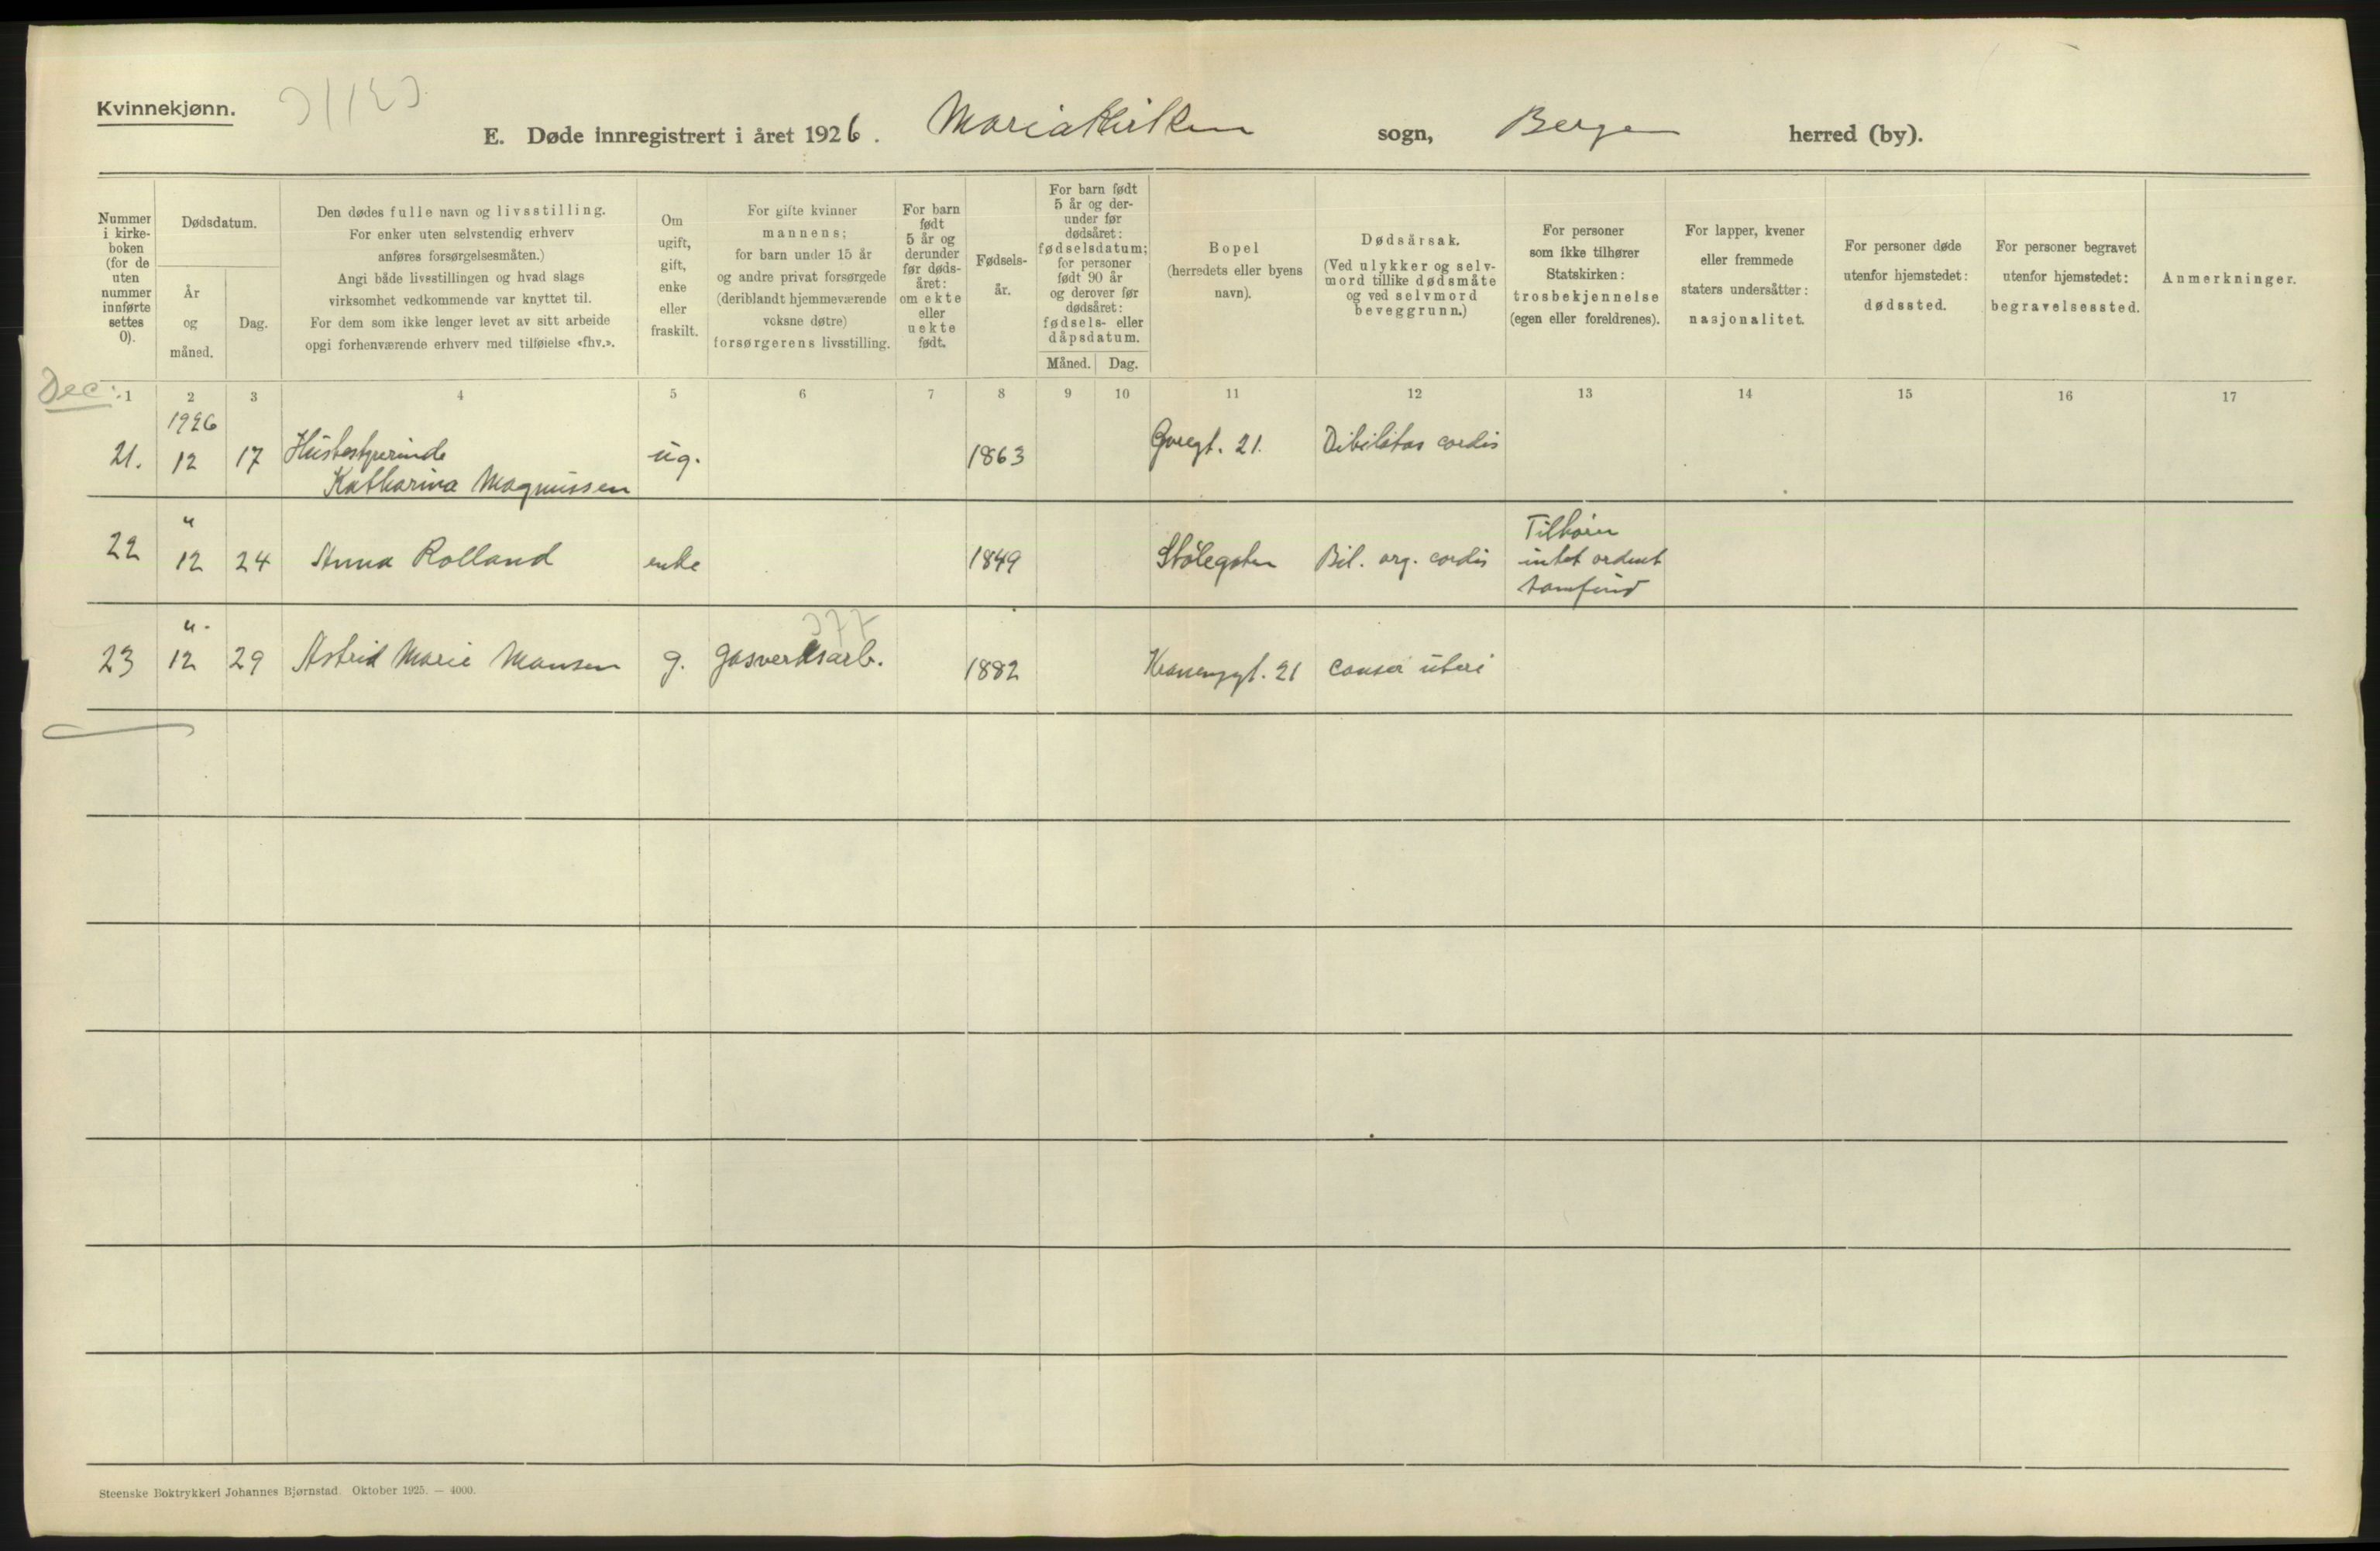 Kvinnekjønn.
E. Døde innregistrert i året 1926. Mariakirken sogn, Bergen herred (by).
Nummer i kirke-boken (for de uten nummer innførte settes 0).
Dødsdatum.
År og måned.
Dag.
Den dødes fulle navn og livsstilling.
For enker uten selvstendig erhverv
anføres forsørgelsesmåten.)
Angi både livsstillingen og hvad slags
virksomhet vedkommende var knyttet til.
For dem som ikke lenger levet av sitt arbeide
opgi forhenværende erhverv med tilføielse «fhv.».
Om ugift, gift, enke eller fraskilt.
For gifte kvinner
mannens;
for barn under 15 år
og andre privat forsørgede
(deriblandt hjemmeværende
voksne døtre)
forsørgerens livsstilling.
For barn født 5 år og derunder før døds-året: om ekte eller uekte født.
Fødsels-år.
For barn født
5 år og der-
under før
dødsåret:
fødselsdatum;
for personer
født 90 år
og derover før
dødsåret:
fødsels- eller
dåpsdatum.
Måned. Dag.
Bopel
(herredets eller byens
navn).
Dødsårsak.
(Ved ulykker og selv-
mord tillike dødsmåte
og ved selvmord
beveggrunn.)
For personer
som ikke tilhører
Statskirken:
trosbekjennelse
(egen eller foreldrenes).
For lapper, kvener
eller fremmede
staters undersåtter:
nasjonalitet.
For personer døde
utenfor hjemstedet:
dødssted.
For personer begravet
utenfor hjemstedet:
begravelsessted.
Anmerkninger.
Dec:
1 2 3 4 5 6 7 8 9 10 11 12 13 14 15 16 17
1926
21. 12 17 Husbestyrerinde ug. 1863 21. Dibilitas cordis
Katharina Magnussen
22 " 12 24 Anna Rolland enke 1849 Stølegaten Bil. org. cordis Tilhører
intet ordent
samfund
377
23 " 12 29 Astrid Marie Monsen g. Gasverksarb. 1882 21 Canser uteri
Steenske Boktrykkeri Johannes Bjørnstad. Oktober 1925. — 4000.